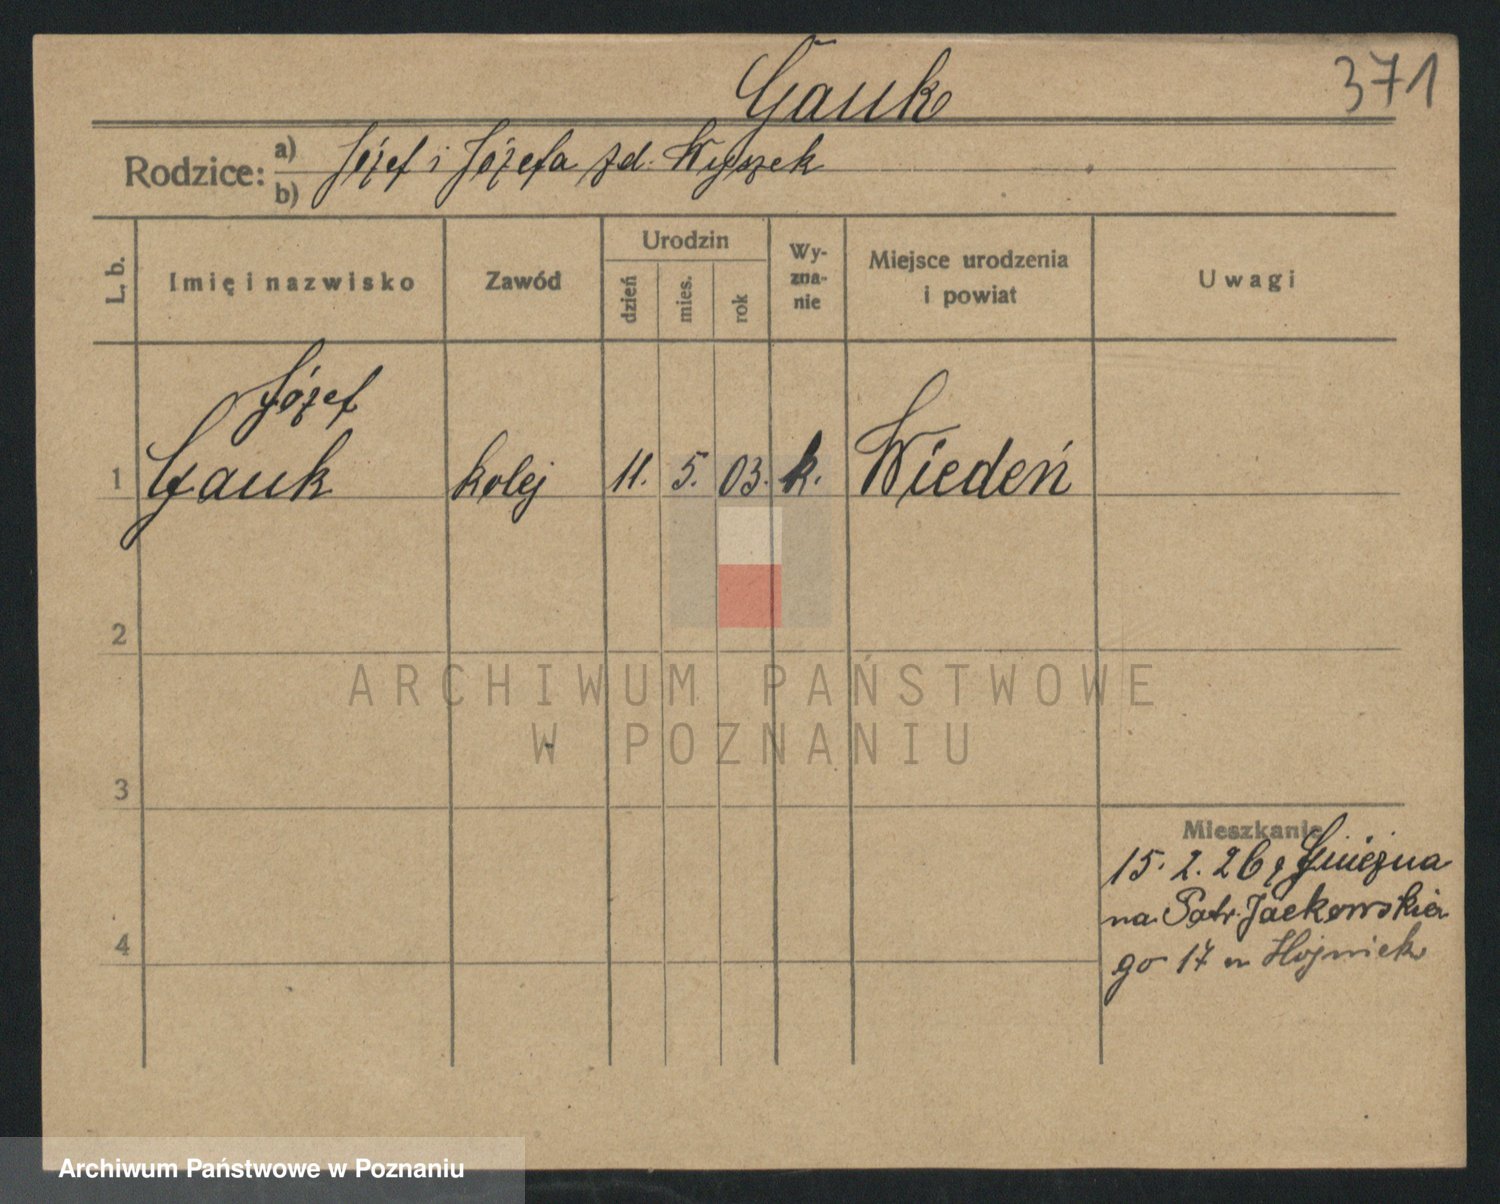 Gauk
371
Rodzice: a) b) Józef i Józefa zd. Wyszek
L. b.
Imię i nazwisko
Zawód
Urodzin
dzień
mies.
rok
Wy-
zna-
nie
Miejsce urodzenia
i powiat
Uwagi
Józef
1 Gauk kolej 11. 5. 03. k. Wiedeń
2
ARCHIWUM PAŃSTWOWE
W POZNANIU
3
Mieszkanie
15. 2. 26 z Gniezna
na Patr. Jackowskie
4
go 17 u
Archiwum Państwowe w Poznaniu